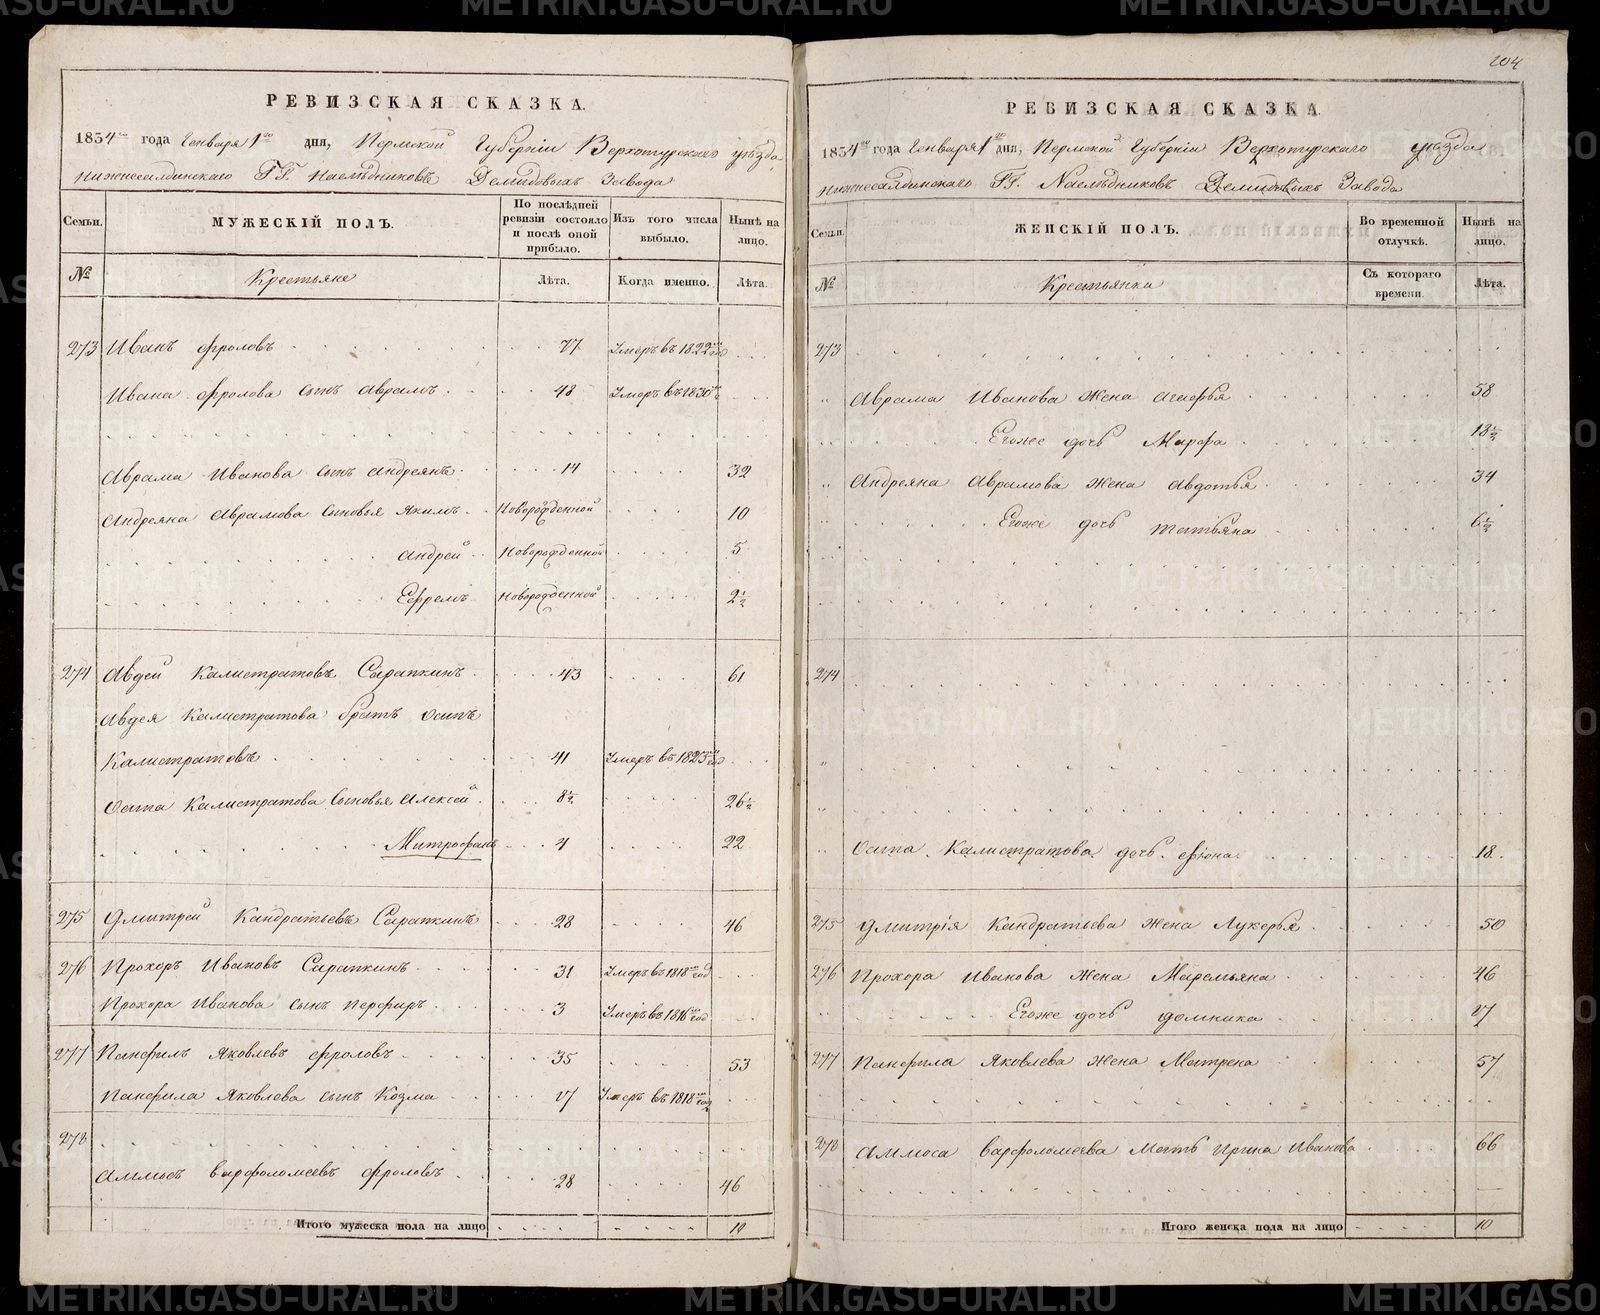 РЕВИЗСКАЯ СКАЗКА.
1834го года Генваря 1го дня, Пермской Губерніи Верхотурскаго уѣзда
Нижнесалдинскаго ГГ. Наслѣдниковъ Демидовыхъ Завода
Семьи.
МУЖЕСКІЙ ПОЛЪ.
По послѣдней ревизіи состояло и послѣ оной прибыло.
Изъ того числа выбыло.
Нынѣ на лицо.
№
Крестьяне
Лѣта.
Когда именно.
Лѣта.
273 Иванъ Фроловъ 77 Умеръ въ 1822мъ год
Ивана Фролова сынъ Аврамъ 48 Умеръ въ 1830мъ
Аврама Иванова сынъ Андреянъ 14 32
Андреяна Аврамова сыновья Якимъ Новорожденной 10
Андрей Новорожденной 5
Ефремъ Новорожденной 2½
274 Авдей Калистратовъ Сарапкинъ 43 61
Авдея Калистратова братъ Осипъ
Калистратовъ 41 Умеръ въ 1825мъ год
Осипа Калистратова сыновья Алексей 8½ 26½
Митрофанъ 4 22
275 Дмитрей Кандратьевъ Сарапкинъ 28 46
276 Прохоръ Ивановъ Сарапкинъ 31 Умеръ въ 1818мъ год
Прохора Иванова сынъ Перфиръ 3 Умеръ въ 1816мъ год
277 Панфилъ Яковлевъ Фроловъ 35 53
Панфила Яковлева сынъ Козма 7 Умеръ въ 1818мъ год
278
Аммосъ Варфоломеевъ Фроловъ 28 46
Итого мужеска пола на лицо 10
204
РЕВИЗСКАЯ СКАЗКА.
1834го года Генваря 1го дня, Пермской Губерніи Верхотурскаго уѣзда
Нижнесалдинскаго ГГ. Наслѣдниковъ Демидовыхъ Завода
Семьи.
ЖЕНСКІЙ ПОЛЪ.
Во временной отлучкѣ.
Нынѣ на лицо.
№
Крестьянки
Съ котораго времени.
Лѣта.
273
Аврама Иванова жена Агафья 58
Егоже дочь Марфа 18½
Андреяна Аврамова жена Авдотья 34
Егоже дочь Татьяна 6½
274
Осипа Калистратова дочь Фіона 18
275 Дмитрія Кандратьева жена Лукерья 50
276 Прохора Иванова жена Маремьяна 46
Егоже дочь Домника 17
277 Панфила Яковлева жена Матрена 57
278 Аммоса Варфоломеева Мать Ирина Иванова 66
Итого женска пола на лицо 10
METRIKI.GASO-URAL.RU